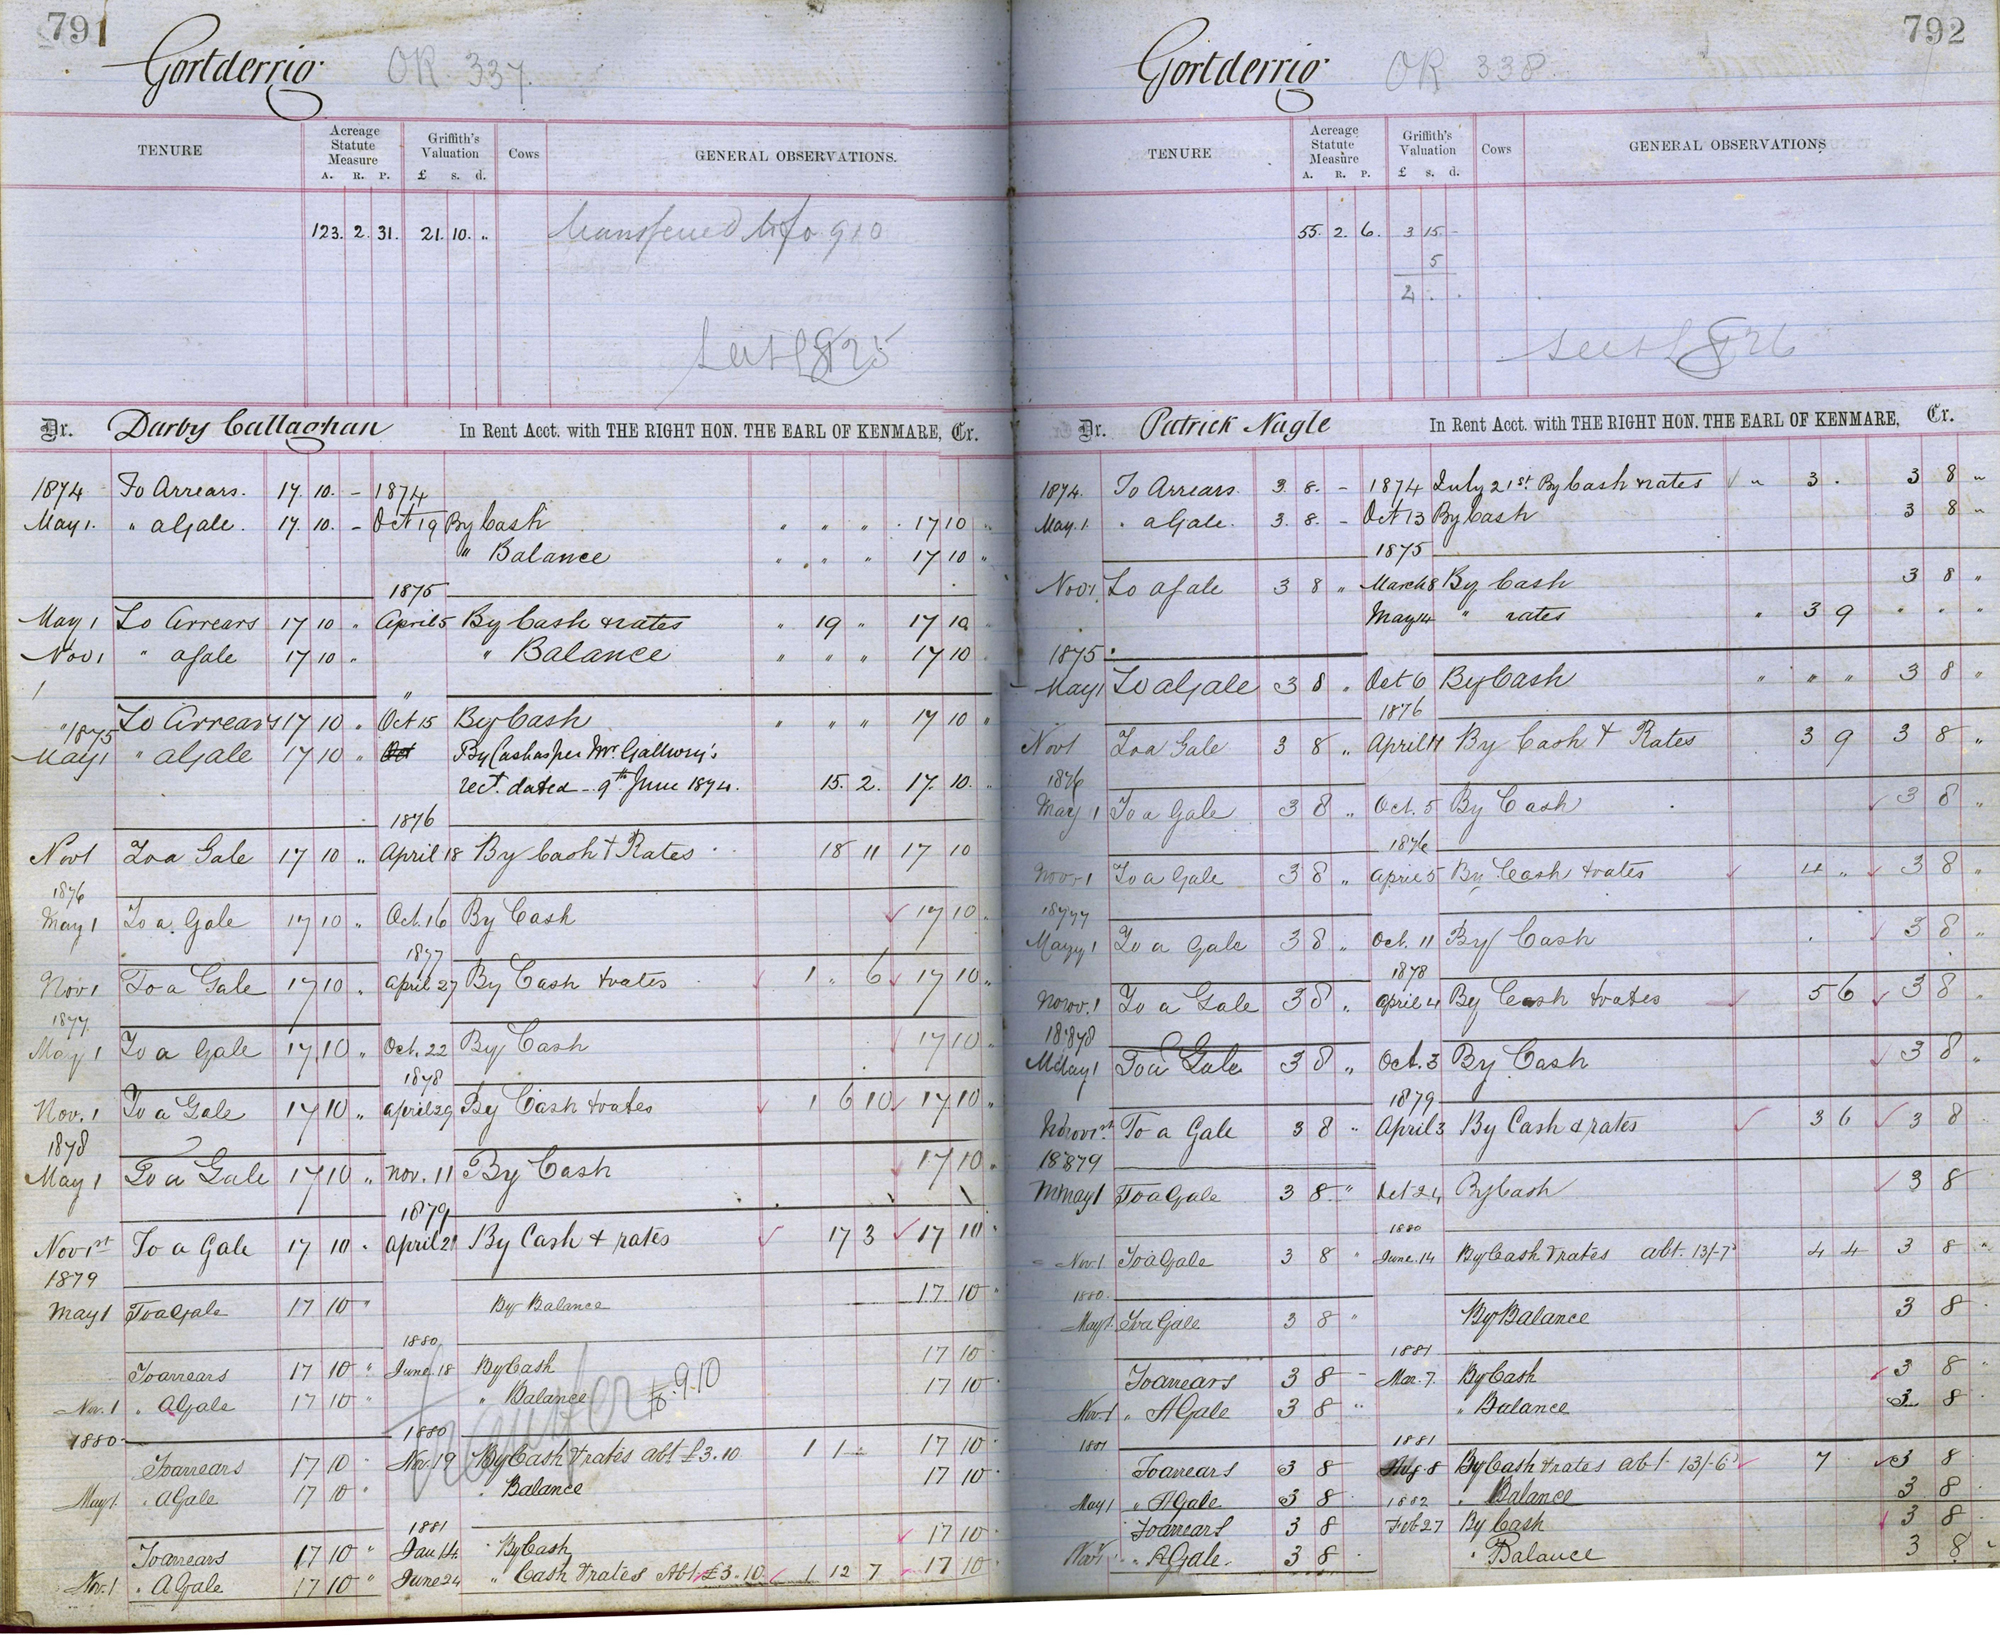 791
Gortderrig OR 337.
TENURE Acreage Statute Measure Griffith's Valuation Cows GENERAL OBSERVATIONS.
A. R. P. £ s. d.
123. 2. 31. 21. 10. " transferred to fo 910
Dr. Darby Callaghan In Rent Acct. with THE RIGHT HON. THE EARL OF KENMARE, Cr.
1874 To Arrears. 17. 10. - 1874
May 1. " a Gale. 17. 10. - Oct 19 By Cash " " " 17 10 "
" Balance " " " 17 10 "
1875
May 1 To Arrears 17 10 " April 5 By Cash & rates " 19 " 17 10 "
Nov 1 " a Gale 17 10 " " Balance " " " 17 10 "
1 "
" To Arrears 17 10 " Oct 15 By Cash " " " 17 10 "
1875
May 1 " a Gale 17 10 " Oct By Cash as per Mr. Gallwey's
rect. dated - 9th June 1874. 15. 2. 17. 10. "
1876
Nov 1 To a Gale 17 10 " April 18 By Cash & Rates 18 11 17 10
1876
May 1 To a Gale 17 10 " Oct. 16 By Cash 17 10 "
1877
Nov 1 To a Gale 17 10 " April 27 By Cash & rates 1 " 6 17 10 "
1877
May 1 To a Gale 17 10 " Oct. 22 By Cash 17 10 "
1878
Nov. 1 To a Gale 17 10 " April 29 By Cash & rates 1 6 10 17 10 "
1878
May 1 To a Gale 17 10 " Nov. 11 By Cash 17 10 "
1879
Nov 1st To a Gale 17 10 " April 21 By Cash & rates 17 3 17 10 "
1879
May 1 To a Gale 17 10 " By Balance 17 10 "
1880
To arrears 17 10 " June 18 By Cash 17 10
Nov. 1 " A Gale 17 10 " " Balance fo 910 17 10
1880 1880
Transfer
To arrears 17 10 " Nov. 19 By Cash & rates abt £3.10 1 1 " 17 10
May 1 " A Gale 17 10 " " Balance 17 10
1881
To arrears 17 10 " Jan 14 By Cash 17 10
Nov. 1 " A Gale 17 10 " June 24 " Cash & rates Abt £3.10 1 12 7 17 10
792
Gortderrig OR 338
TENURE Acreage Statute Measure Griffith's Valuation Cows GENERAL OBSERVATIONS
A. R. P. £ s. d.
55. 2. 6. 3 15 -
5
4 . .
Dr. Patrick Nagle In Rent Acct. with THE RIGHT HON. THE EARL OF KENMARE, Cr.
1874. To Arrears. 3. 8. - 1874 July 21st By Cash & rates " 3 . 3 8 "
May. 1. " a Gale. 3. 8. - Oct 13 By Cash 3 8 "
1875
Nov 1. To a Gale 3 8 " March 8 By Cash 3 8 "
May 14 " rates " 3 9 " " "
1875
May 1 To a Gale 3 8 " Oct 6 By Cash " " " 3 8 "
1876
Nov 1 To a Gale 3 8 " April 17 By Cash & Rates 3 9 3 8 "
1876
May 1 To a Gale 3 8 " Oct. 5 By Cash 3 8 "
1876
Nov 1 To a Gale 3 8 " April 5 By Cash & rates 4 " 3 8 "
1877
May 1 To a Gale 3 8 " Oct. 11 By Cash 3 8 "
1878
Nov. 1 To a Gale 3 8 " April 4 By Cash & rates 5 6 3 8 "
1878
May 1 To a Gale 3 8 " Oct. 3 By Cash 3 8 "
1879
Nov 1st To a Gale 3 8 " April 3 By Cash & rates 3 6 3 8
1879
May 1 To a Gale 3 8 " Oct 24 By Cash 3 8
1880
Nov. 1 To a Gale 3 8 " June. 14 By Cash & rates abt. 13/-7 4 4 3 8 "
1880.
May 1. To a Gale 3 8 " By Balance 3 8
1881
To arrears 3 8 - Mar. 7. By Cash 3 8 "
Nov. 1 " A Gale 3 8 " " Balance 3 8
1881 1881
To arrears 3 8 Aug. 8 By Cash & rates abt 13/-6 7 3 8
May 1 " A Gale 3 8 1882 " Balance 3 8
To arrears 3 8 Feb 27 By Cash 3 8
Nov 1 " A Gale. 3 8 " Balance 3 8